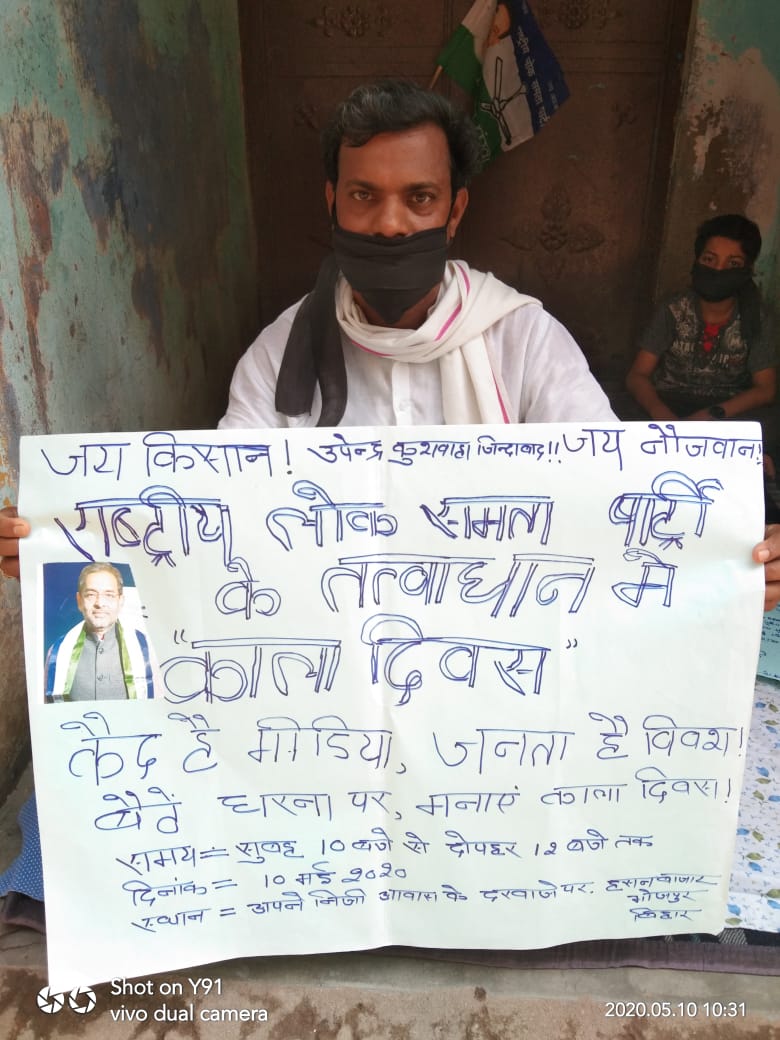 जय किसान! उपेन्द्र कुशवाहा जिन्दावाद!! जय नौजवान!
राष्ट्रीय लोक समता पार्ट्री
के तत्वाधान मे
"काला दिवस"
कैद है मीडिया, जनता है विवश!
बैठें धरना पर, मनाएं काला दिवस!
समय = सुबह 10 बजे से दोपहर 12 बजे तक
दिनांक = 10 मई 2020
स्थान = अपने निजी आवास के दरवाजे पर. हसनबाजार
भोजपुर
बिहार
Shot on Y91
vivo dual camera
2020.05.10 10:31